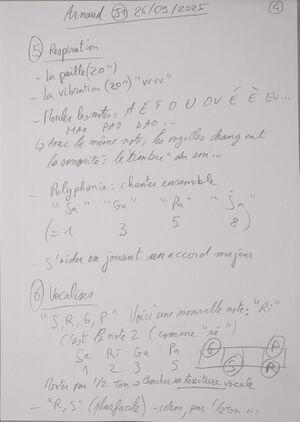 Arnaud S1 26/09/2025 4
5 Respiration
- La paille (20")
- La vibration (20") "vvvv"
- Mouler les notes: A E I O U OU É È EU...
MAO PAO DAO...
↳ Avec la même note, les voyelles changent
la sonorité: le "timbre" du son...
- Polyphonie: chanter ensemble
"Sa" "Ga" "Pa" "Ṡa"
(= 1 3 5 8)
- S'aider en jouant un accord majeur
6 Vocalises
"S, R, G, P" Voici une nouvelle note: "Ri"
C'est la note 2 (comme "ré")
Sa Ri Ga Pa
1 2 3 5
G P
S R
Monter par 1/2 ton → Chercher sa tessiture vocale
- "R, S" (plus facile) - idem, par 1/2 ton...